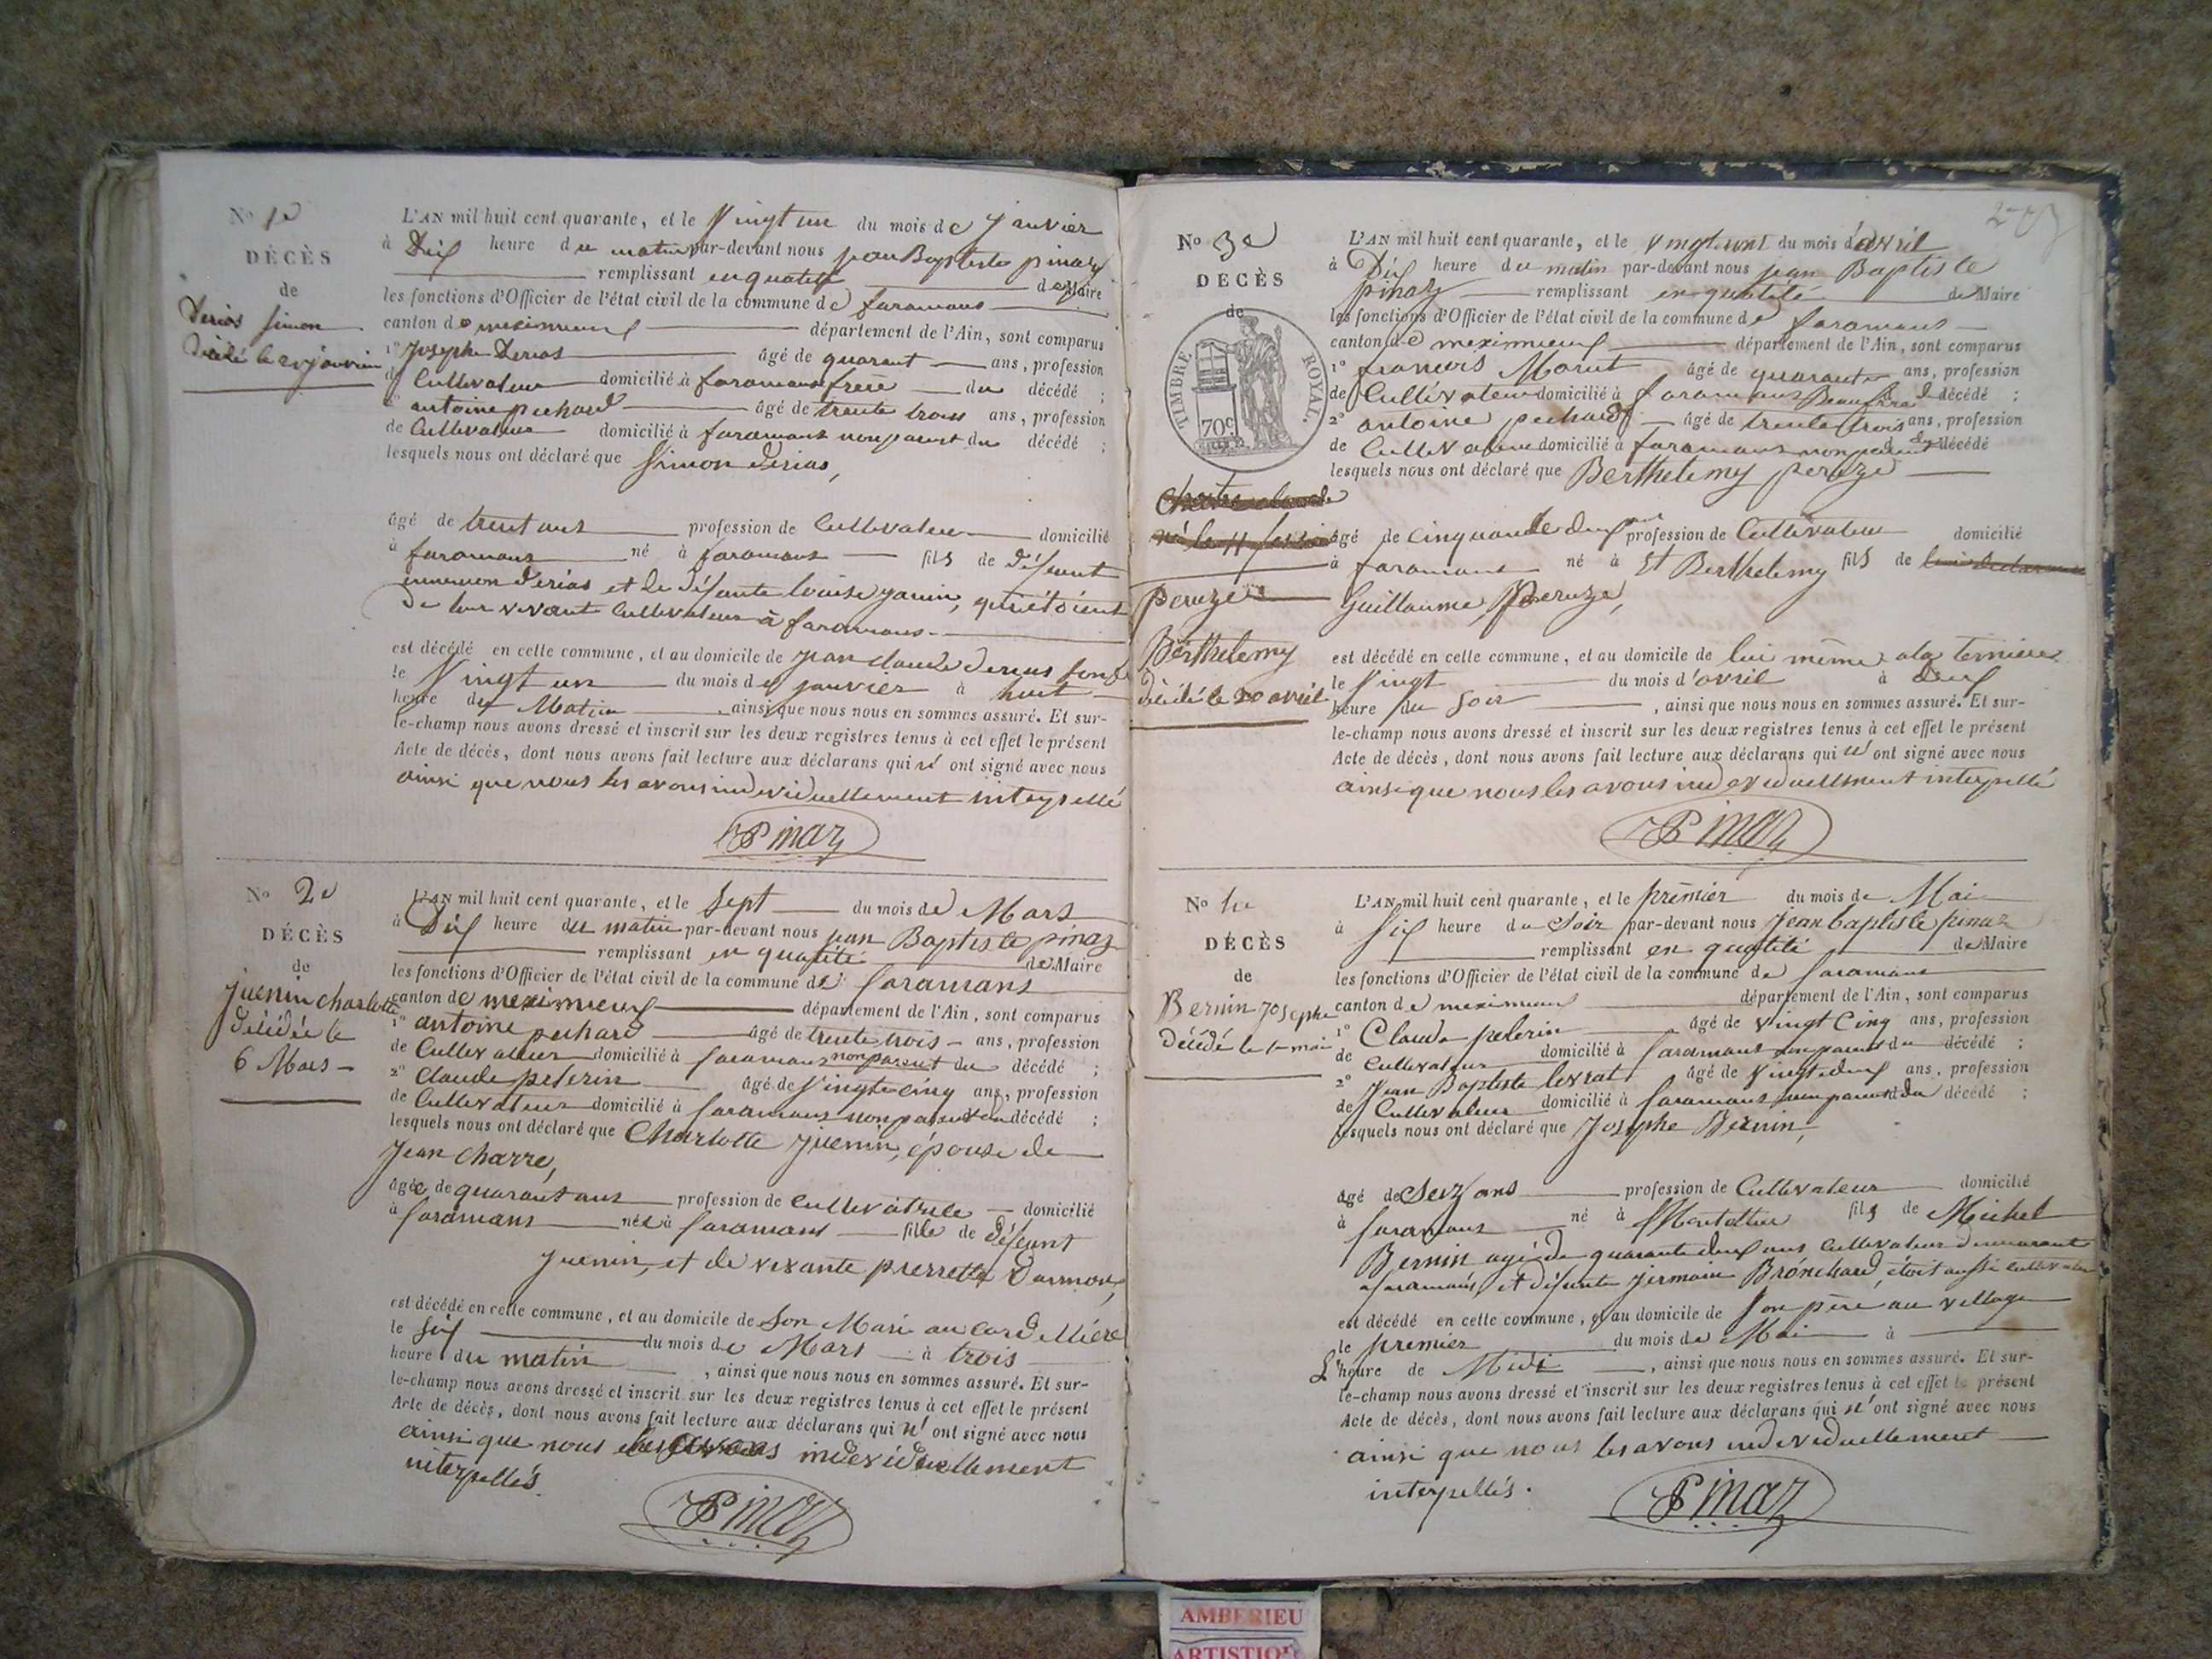 No 1e
DÉCÈS
de
Derias Simon
décédé le 21 janvier
L'AN mil huit cent quarante, et le Vingt un du mois de Janvier
à Dix heure du matin par-devant nous jean Baptiste pinaz
remplissant en qualité de Maire
les fonctions d'Officier de l'état civil de la commune de faramans
canton de meximieux département de l'Ain, sont comparus
1º Josephe Derias âgé de quarant ans, profession
de Cultivateur domicilié à faramans frère du décédé ;
2º antoine pechard âgé de trente trois ans, profession
de Cultivateur domicilié à faramans non parent du décédé ;
lesquels nous ont déclaré que Simon derias,
âgé de trent ans profession de Cultivateur domicilié
à faramans né à faramans fils de défunt
derias et de défunte louise janin, qui étoient
de leur vivant Cultivateurs à faramans.
est décédé en cette commune, et au domicile de jean claude derias
le Vingt un du mois de janvier à huit
heure du Matin, ainsi que nous nous en sommes assuré. Et sur-
le-champ nous avons dressé et inscrit sur les deux registres tenus à cet effet le présent
Acte de décès, dont nous avons fait lecture aux déclarans qui n' ont signé avec nous
ainsi que nous les avons individuellement interpellé
Pinaz
No 2e
DÉCÈS
de
juenin charlotte
décédée le
6 Mars
L'AN mil huit cent quarante, et le Sept du mois de Mars
à Dix heure du matin par-devant nous jean Baptiste pinaz
remplissant en qualité de Maire
les fonctions d'Officier de l'état civil de la commune de faramans
canton de meximieux département de l'Ain, sont comparus
1º antoine pechard âgé de trente trois ans, profession
de Cultivateur domicilié à faramans non parent du décédé ;
2º Claude pelerin âgé de Vingt cinq ans, profession
de Cultivateur domicilié à faramans non parent du décédé ;
lesquels nous ont déclaré que Charlotte juenin, épouse de
Jean Charre,
âgée de quarant ans profession de Cultivatrice domicilié
à faramans née à faramans fille de défunt
juenin, et de vivante pierrette
est décédé en cette commune, et au domicile de Son Mari
le Six du mois de Mars à trois
heure du matin, ainsi que nous nous en sommes assuré. Et sur-
le-champ nous avons dressé et inscrit sur les deux registres tenus à cet effet le présent
Acte de décès, dont nous avons fait lecture aux déclarans qui n' ont signé avec nous
ainsi que nous les avons individuellement
interpellés.
Pinaz
No 3e
DÉCÈS
de
TIMBRE ROYAL.
70c
peruze
Berthelemy
décédé le 20 avril
L'AN mil huit cent quarante, et le Vingt unt du mois d'avril
à Dix heure du matin par-devant nous jean Baptiste
pinaz remplissant en qualité de Maire
les fonctions d'Officier de l'état civil de la commune de faramans
canton de meximieux département de l'Ain, sont comparus
1º francois Morut âgé de quarante ans, profession
de Cultivateur domicilié à faramans Beaufrère décédé ;
2º antoine pechard âgé de trente trois ans, profession
de Cultivateur domicilié à faramans non parent du décédé
lesquels nous ont déclaré que Berthelemy peruze
âgé de cinquante deux ans profession de Cultivateur domicilié
à faramans né à St Berthelemy fils de
Guillaume Peruze,
est décédé en cette commune, et au domicile de lui même
le Vingt du mois d'avril à deux
heure du Soir, ainsi que nous nous en sommes assuré. Et sur-
le-champ nous avons dressé et inscrit sur les deux registres tenus à cet effet le présent
Acte de décès, dont nous avons fait lecture aux déclarans qui n' ont signé avec nous
ainsi que nous les avons individuellement interpellé
Pinaz
No 4e
DÉCÈS
de
Bernin Josephe
décédé le 1r mai
L'AN mil huit cent quarante, et le premier du mois de Mai
à Six heure du Soir par-devant nous Jean baptiste pinaz
remplissant en qualité de Maire
les fonctions d'Officier de l'état civil de la commune de faramans
canton de meximieux département de l'Ain, sont comparus
1º Claude pelerin âgé de Vingt Cinq ans, profession
de Cultivateur domicilié à faramans non parent du décédé ;
2º Jean Baptiste levrat âgé de Vingt deux ans, profession
de Cultivateur domicilié à faramans non parent du décédé ;
lesquels nous ont déclaré que Josephe Bernin,
âgé de Seiz ans profession de Cultivateur domicilié
à faramans né à fils de Michel
Bernin agé de quarante deux ans Cultivateur demeurant
a faramans, et défunte jermaine Bronchard, étoit aussi cultivateur
est décédé en cette commune, et au domicile de Son père au village
le premier du mois de Mai à
L'heure de Midi, ainsi que nous nous en sommes assuré. Et sur-
le-champ nous avons dressé et inscrit sur les deux registres tenus à cet effet le présent
Acte de décès, dont nous avons fait lecture aux déclarans qui n' ont signé avec nous
ainsi que nous les avons individuellement
interpellés.
Pinaz
AMBERIEU
ARTISTIQ